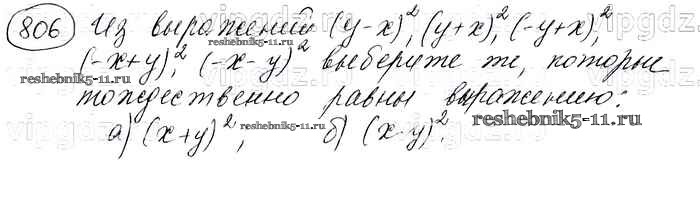 806 Из выражений (y-x)², (y+x)², (-y+x)²,
(-x+y)², (-x-y)² выберите те, которые
тождественно равны выражению:
а) (x+y)², б) (x-y)².
reshebnik5-11.ru
reshebnik5-11.ru
reshebnik5-11.ru
reshebnik5-11.ru
vipgdz.ru
vipgdz.ru
vipgdz.ru